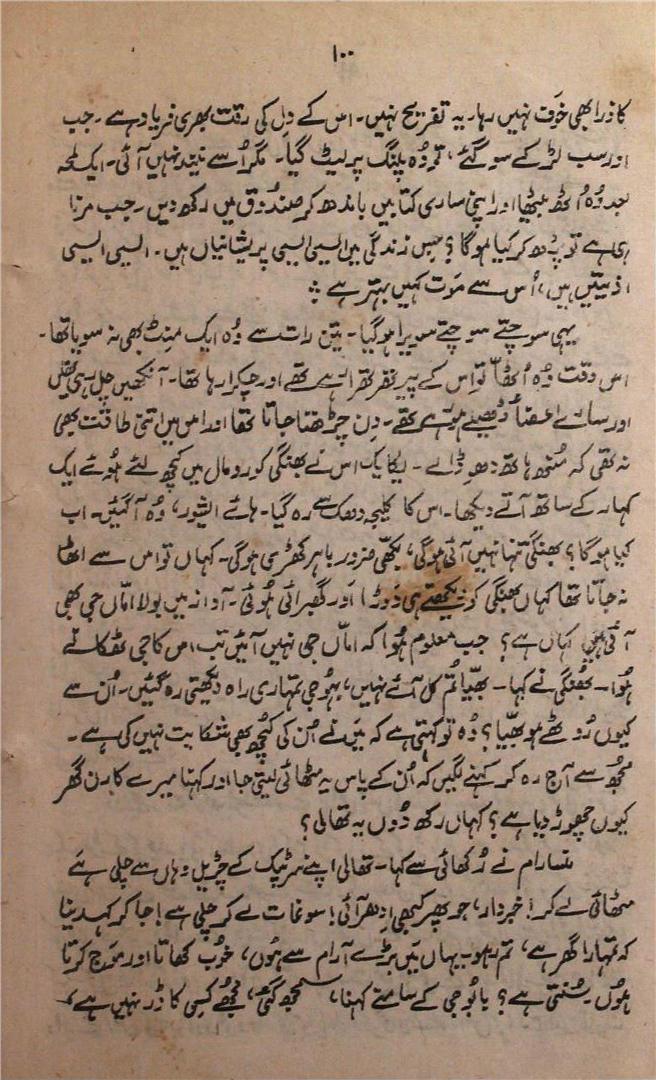 ۱۰۰
کا ذرا بھی خوف نہیں رہا۔ یہ تفریح نہیں۔ اس کے دِل کی رقت بھری فریاد ہے۔ جب
اور سب لڑکے سو گئے، تو وُہ پلنگ پر لیٹ گیا۔ مگر اُسے نیند نہیں آئی۔ ایک لمحہ
بعد وُہ اُٹھ بیٹھا اور اپنی ساری کتابیں باندھ کر صندوق میں رکھ دیں۔ جب مرنا
ہی ہے تو پڑھ کر کیا ہوگا؟ جس زندگی میں ایسی ایسی پریشانیاں ہیں۔ ایسی ایسی
اذیتیں ہیں، اُس سے مَوت کہیں بہتر ہے ؞
یہی سوچتے سوچتے سویرا ہوگیا۔ تین رات سے وُہ ایک منٹ بھی نہ سویا تھا۔
اس وقت وُہ اُٹھا تو اس کے پیر تھرتھرا رہے تھے اور سر چکرا رہا تھا۔ آنکھیں جل رہی تھیں
اور سارے اعضأ ڈھیلے ہو رہے تھے۔ دِن چڑھتا جاتا تھا اور اس میں اتنی طاقت بھی
نہ تھی کہ مُنہ ہاتھ دھو ڈالے۔ یکایک اس نے بھنگی کو رومال میں کچھ لئے ہُوئے ایک
کہار کے ساتھ آتے دیکھا۔ اس کا کلیجہ دھک سے رہ گیا۔ ہائے ایشور، وُہ آ گئیں۔ اب
کیا ہوگا؟ بھنگی تنہا نہیں آئی ہوگی، بگھی ضرور باہر کھڑی ہوگی۔ کہاں تو اس سے اٹھا
نہ جاتا تھا کہاں بھنگی کو دیکھتے ہی دَوڑا اور گھبرائی ہُوئی۔ آواز میں بولا اماں جی بھی
آئی ہیں کہاں ہے؟ جب معلوم ہُوا کہ اماں جی نہیں آئیں تب اس کا جی ٹھکانے
ہُوا۔ بھُنگی نے کہا۔ بھیّا تُم کل آئے نہیں، بہُو جی تمہاری راہ دیکھتی رہ گئیں۔ اُن سے
کیوں رُوٹھے ہو بھیّا؟ وُہ تو کہتی ہے کہ میں نے اُن کی کچُھ بھی شکایت نہیں کی ہے۔
مجُھ سے آج رو کر کہنے لگیں کہ اُن کے پاس یہ مٹھائی لیتی جا اور کہنا میرے کارن گھر
کیوں چھوڑ دیا ہے؟ کہاں رکھ دُوں یہ تھالی؟
منسارام نے رُکھائی سے کہا۔ تھالی اپنے سر پٹک کے چڑیل وہاں سے چلی ہے
مٹھائی لے کر! خبردار، جو پھر کبھی ادھر آئی! سوغات لے کر چلی ہے! جا کر کہہ دینا
کہ تمہارا گھر ہے، تم رہو یہاں میں بڑے آرام سے ہُوں، خوُب کھاتا اور موج کرتا
ہوُں سُنتی ہے؟ بابُو جی کے سامنے کہنا، سمجھ گئی، مجُھے کسی کا ڈر نہیں ہے،